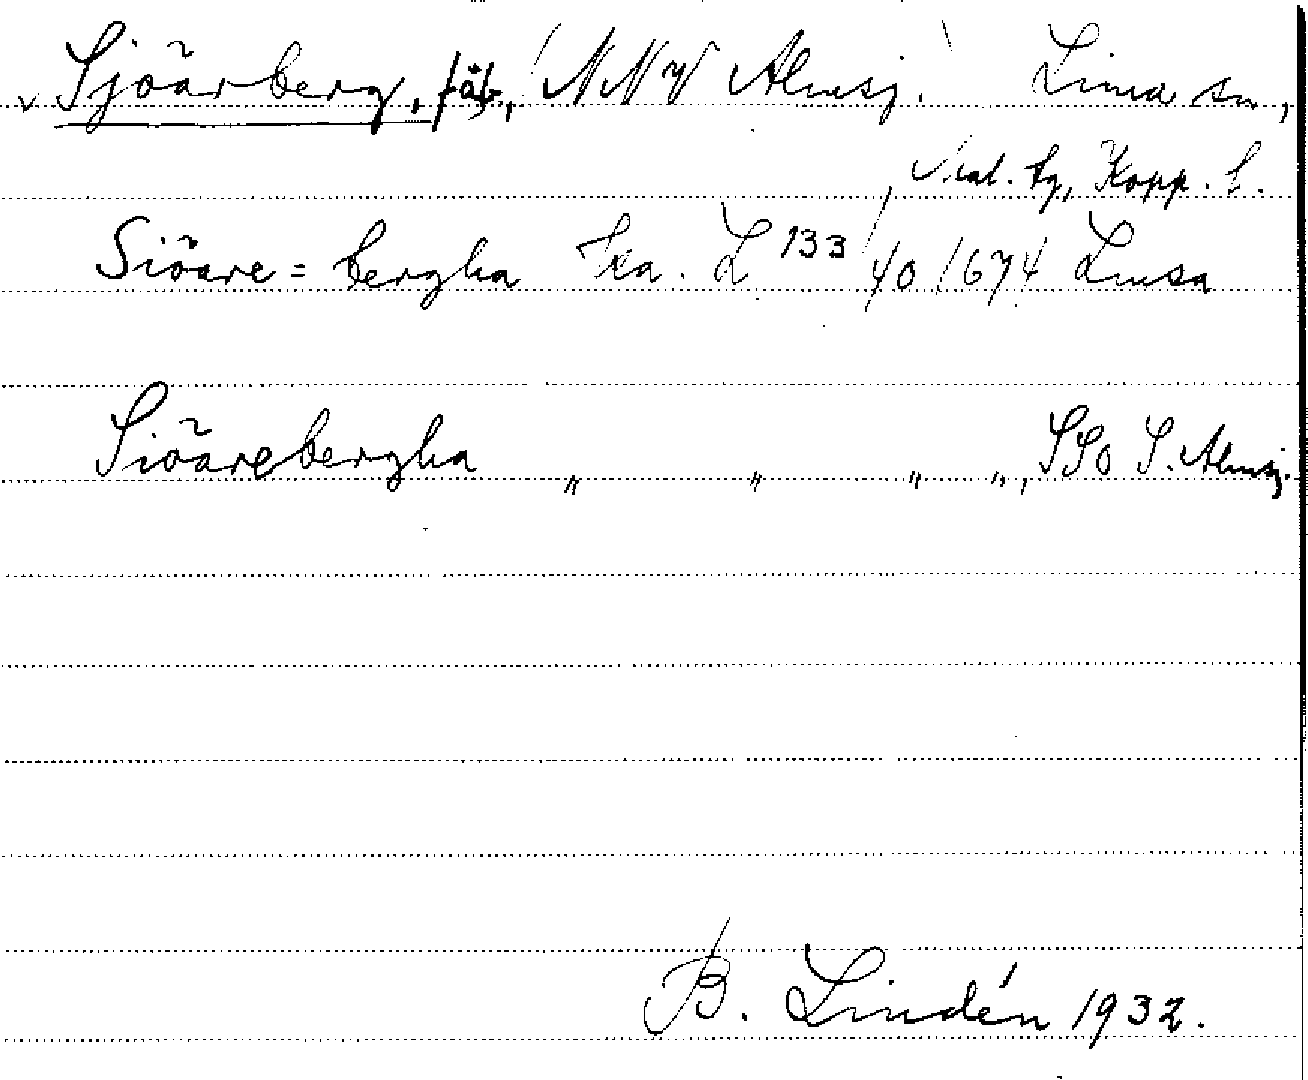 v Sjöarberg, fäb., (NNV Almsj.) Lima sn,
Mal. tg, Kopp. l.
Siöare = bergha Ka. L 133/40 1674 Limsa
Siöarebergha " " " ", SSO S. Almsj.
B. Lindén 1932.